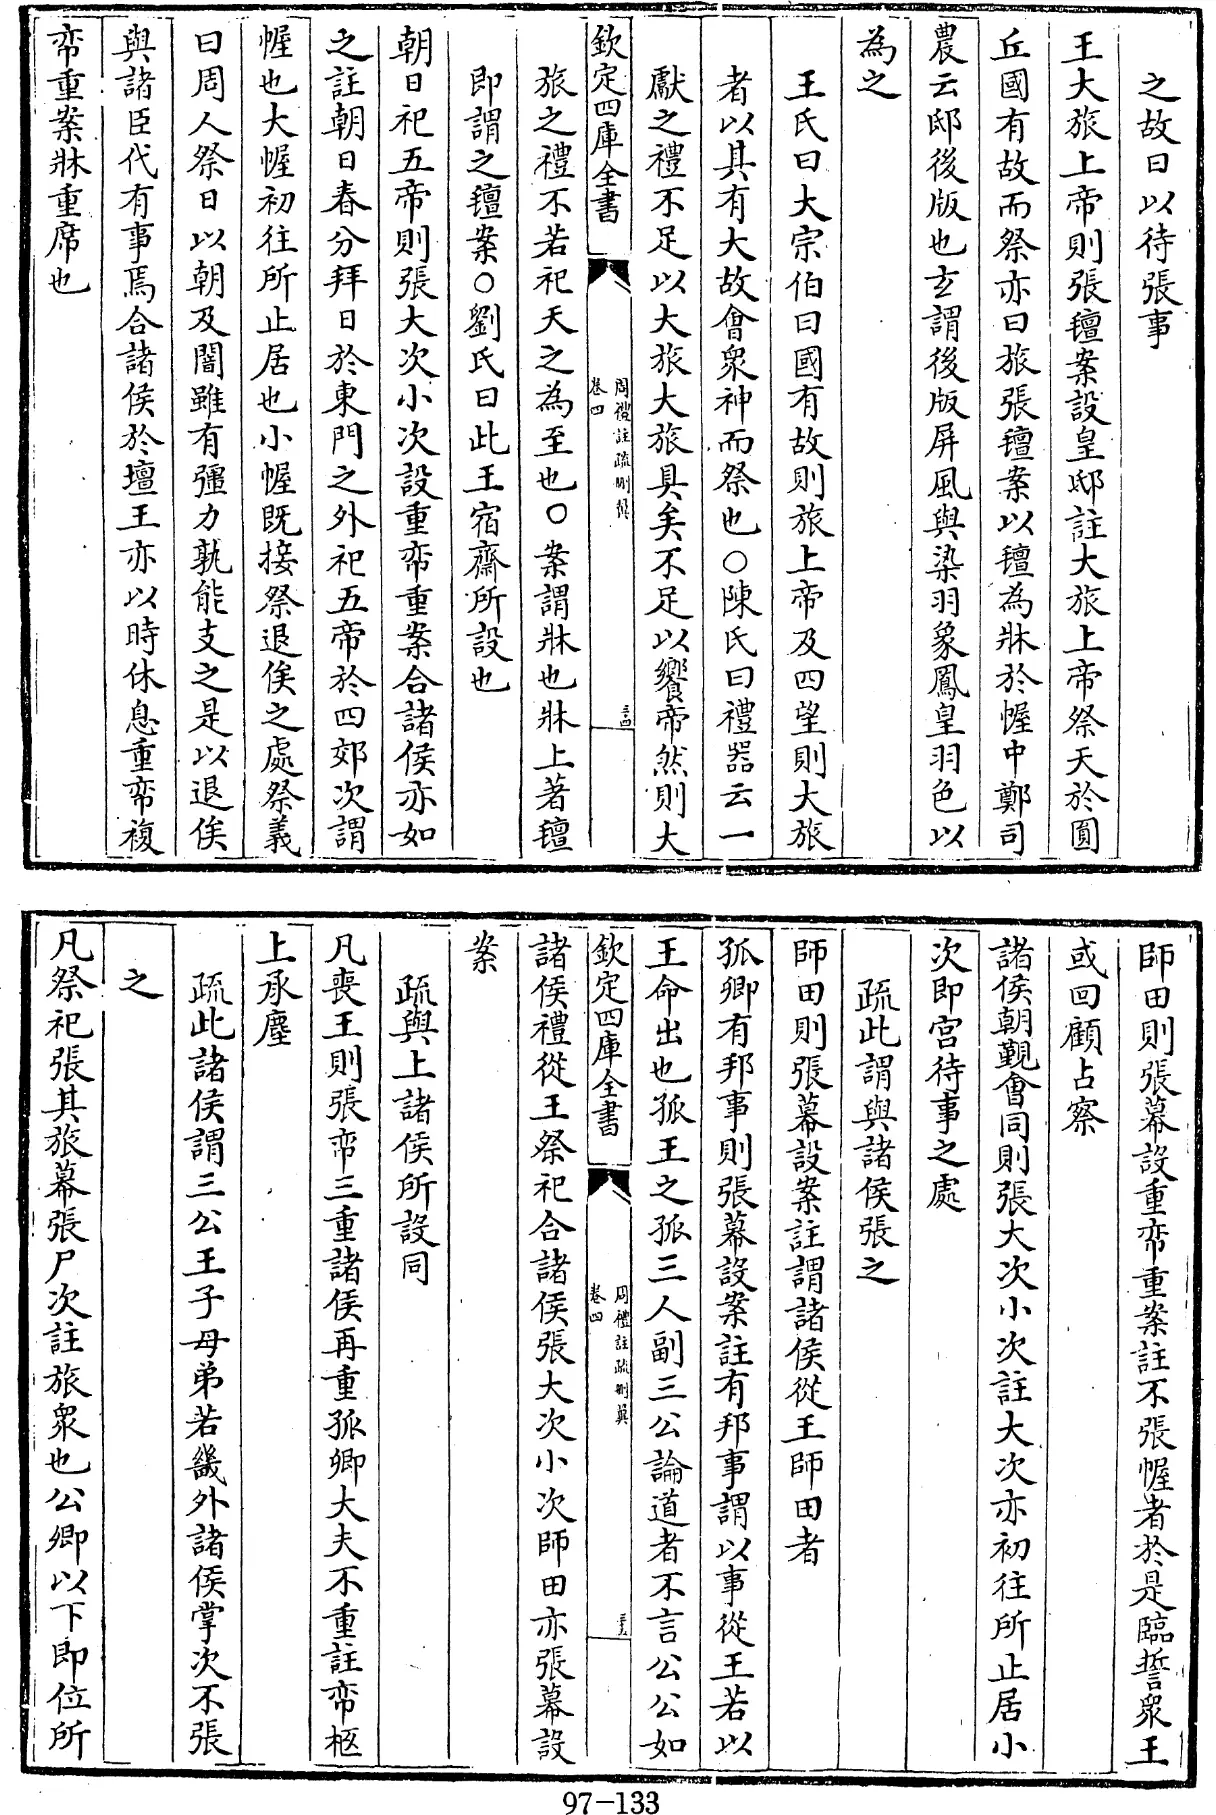 之故曰以待張事
王大旅上帝則張氊案設皇邸註大旅上帝祭天於圓
丘國有故而祭亦曰旅張氊案以氊為牀於幄中 鄭司
農云邸後版也玄謂後版屏風與染羽象鳳皇羽色以
為之
王氏曰大宗伯曰國有故則旅上帝及四望則大旅
者以其有大故㑹衆神而祭也○陳氏曰禮器云一
獻之禮不足以大旅大旅具矣不足以饗帝然則大
欽定四庫全書
周禮註疏刪翼
卷四
三四
旅之禮不若祀天之為至也○案謂牀也牀上著氊
即謂之氊案○劉氏曰此王宿齋所設也
朝日祀五帝則張大次小次設重帟重案合諸侯亦如
之註朝日春分拜日於東門之外祀五帝於四郊次謂
幄也大幄初往所止居也小幄既接祭退俟之處祭義
曰周人祭日以朝及闇雖有彊力孰能支之是以退俟
與諸臣代有事焉合諸侯於壇王亦以時休息重帟複
帟重案牀重席也
師田則張幕設重帟重案註不張幄者於是臨誓衆王
或回顧占察
諸侯朝覲㑹同則張大次小次註大次亦初往所止居小
次即宫待事之處
疏此謂與諸侯張之
師田則張幕設案註謂諸侯從王師田者
孤卿有邦事則張幕設案註有邦事謂以事從王若以
王命出也孤王之孤三人副三公論道者不言公公如
欽定四庫全書
周禮註疏刪翼
卷四
三五
諸侯禮從王祭祀合諸侯張大次小次師田亦張幕設
案
疏與上諸侯所設同
凡喪王則張帟三重諸侯再重孤卿大夫不重註帟柩
上承塵
疏此諸侯謂三公王子母弟若畿外諸侯掌次不張
之
凡祭祀張其旅幕張尸次註旅衆也公卿以下即位所
97-133